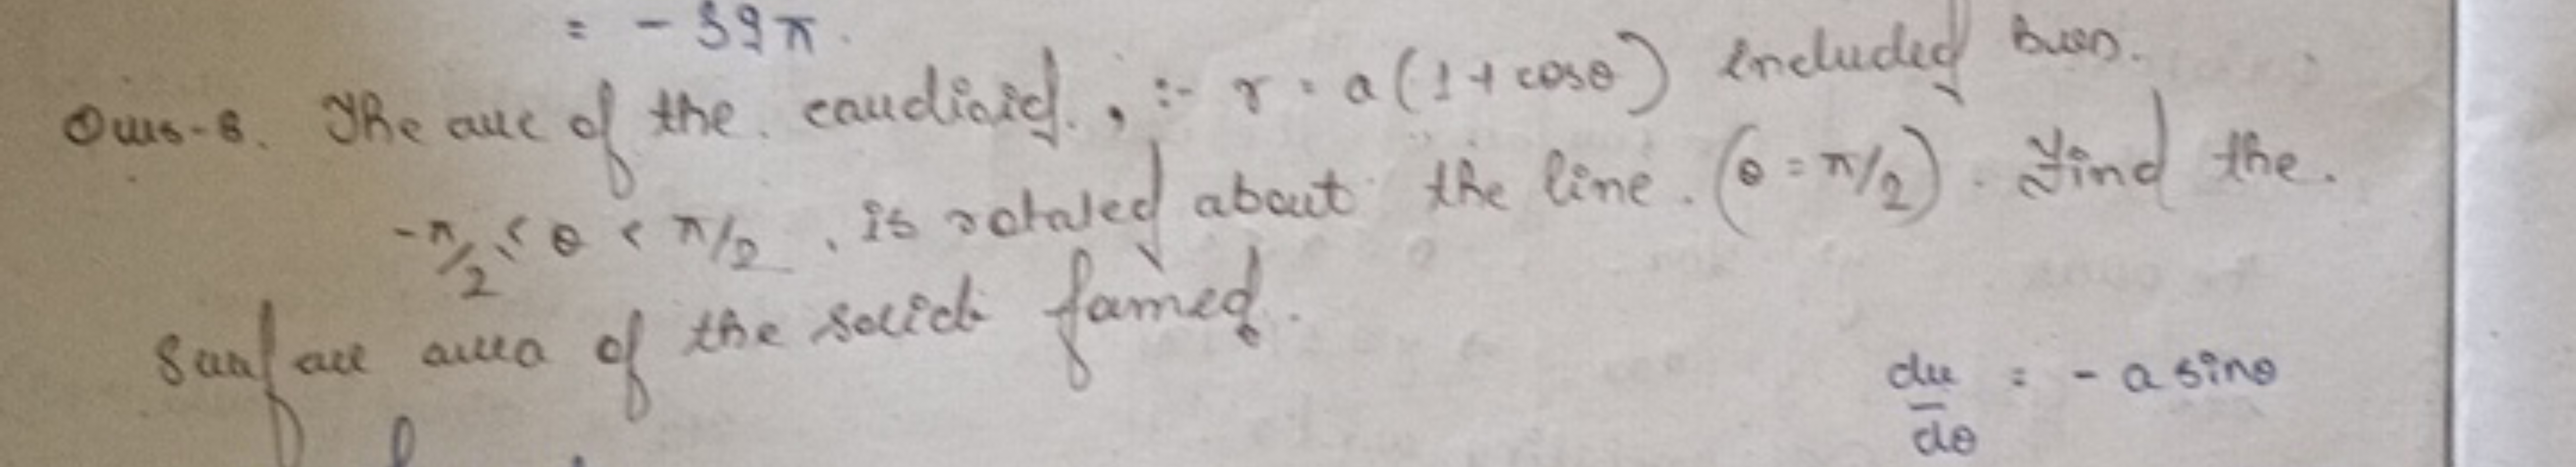 = - 39π.
Ques-8. The arc of the cardioid, :- r = a(1+cosθ) included bwn.
-π/2 < θ < π/2, is rotated about the line. (θ = π/2). Find the.
Surface area of the solid formed.
dr/dθ = - a sinθ